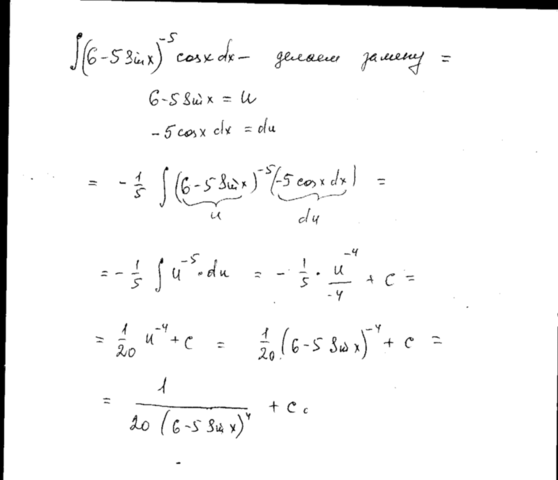 ∫(6-5 sin x)⁻⁵ cosx dx - делаем замену =
6-5 sin x = u
-5 cosx dx = du
= -1/5 ∫ (6-5 sin x)⁻⁵ (-5 cosx dx) =
u du
= -1/5 ∫ u⁻⁵·du = -1/5 · u⁻⁴/-4 + c =
= 1/20 u⁻⁴ + c = 1/20 (6-5 sin x)⁻⁴ + c =
= 1/20 (6-5 sin x)⁴ + c.